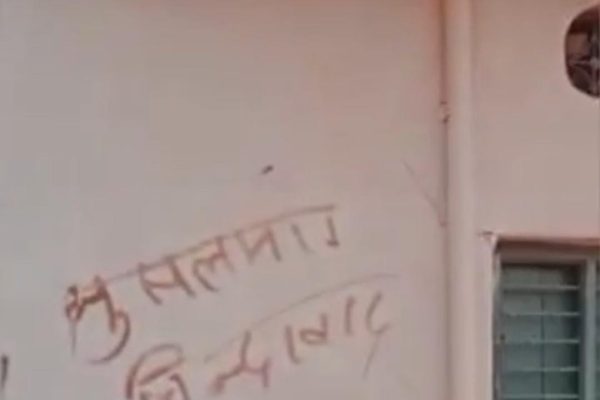 मुसलमान
जिन्दाबाद